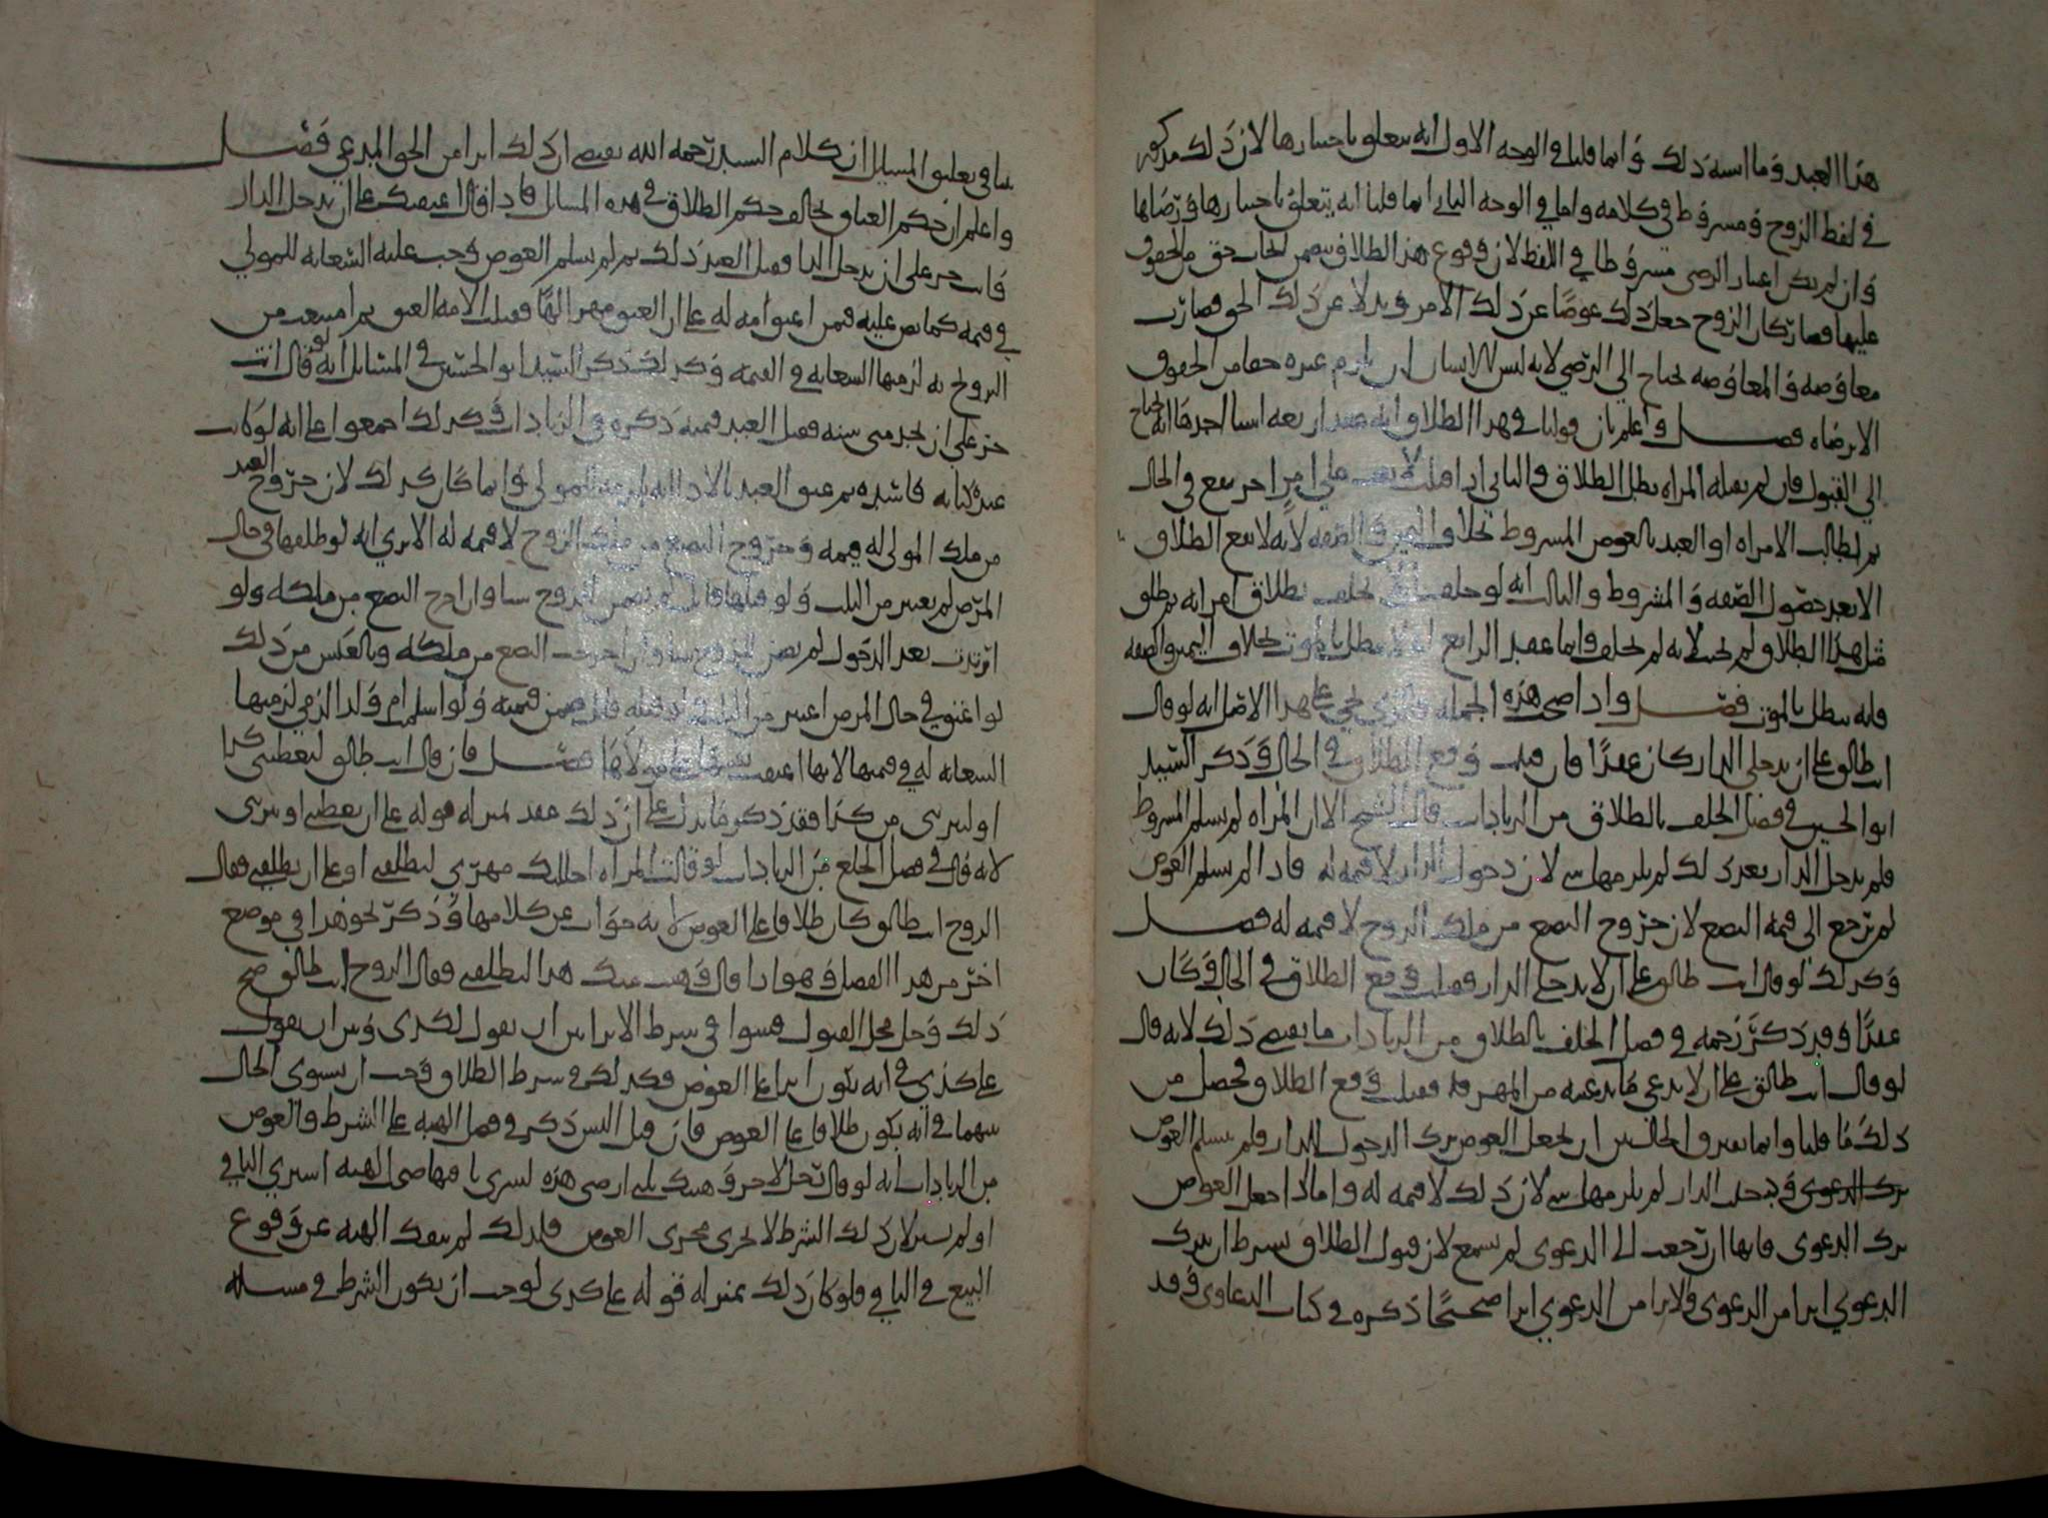 هذا العبد وما اشبه ذلك وانما قلنا في الوجه الاول انه يتعلق باختيارها لان ذلك مذكور
في لفظ الزوج ومشروط في كلامه واما في الوجه الثاني انما قلنا انه يتعلق باختيارها ورضاها
وان لم يكن اعتبار الرضى مشروطا في اللفظ لان وقوع هذا الطلاق يتضمن ايجاب حق من الحقوق
عليها فصار كان الزوج جعل ذلك عوضا عن ذلك الامر وبدلا عن ذلك الحق فصارت
معاوضه والمعاوضه تحتاج الى التراضي لانه ليس للانسان ان يلزم غيره حقا من الحقوق
الا برضاه فصل واعلم بان قولنا في هذا الطلاق انه عقد اربعه اشيا احدها انه يحتاج
الى القبول فان لم يقبله المراه بطل الطلاق والثاني اذا قبلت يقع في الحال
ثم يطالب الامراه او العبد بالعوض المشروط بخلاف اليمين والصفه لانه لا يقع الطلاق
الا بعد حصول الصفه والمشروط والثالث انه لو حلف ان لا يحلف بطلاق امراته ثم طلق
مثل هذا الطلاق لم يحنث لانه لم يحلف وانما عقد الرابع انه لا يبطل بالموت بخلاف اليمين والصفه
فانه يبطل بالموت فصل واذا صحت هذه الجمله فالذي يجي على هذا الاصل انه لو قال
انت طالق على ان تدخلي الدار كان عقدا فان قبلت وقع الطلاق في الحال وذكر السيد
ابو الحسين في فصل الحلف بالطلاق من الزيادات قال الشيخ الا ان المراه لم تسلم المشروط
فلم تدخل الدار بعد ذلك لم يلزمها شي لان دخول الدار لا قيمه له فاذا لم تسلم العوض
لم ترجع الى قيمه البضع لان خروج البضع من ملك الزوج لا قيمه له فصل
وكذلك لو قال انت طالق على ان لا تدخلي الدار فقبلت وقع الطلاق في الحال وكان
عقدا وقد ذكر رحمه في فصل الحلف بالطلاق من الزيادات ما يقتضي ذلك لانه قال
لو قال انت طالق على ان لا تدعي ما تدعيه من المهر فقبلت وقع الطلاق فحصل من
ذلك ما قلنا وانما يفترق الحال بين ان يجعل العوض ترك الدخول للدار فلم تسلم العوض
فتدخل الدار لم يلزمها شي لان ذلك لا قيمه له واما اذا جعل العوض
ترك الدعوى فانها ان رجعت الى الدعوى لم تسمع لان قبول الطلاق بشرط ان تترك
الدعوى ابرا من الدعوى والابرا من الدعوى ابرا صحيحا ذكره في كتاب الدعاوى وقد
بينا في تعليق المسايل ان كلام السيد رحمه الله يقتضي ان ذلك ابرا من الحق المدعى فصل
واعلم ان حكم العتاق يخالف حكم الطلاق في هذه المسايل فاذا قال اعتقتك على ان تدخل الدار
فانت حر على ان تدخل الدار فقبل العبد ذلك ثم لم يسلم العوض وجب عليه السعايه للمولى
في قيمه كما نص عليه فيمن اعتق امه له على ان العتق مهر لها فقبلت الامه العتق ثم امتنعت من
التزويج به لزمها السعايه في القيمه وكذلك ذكر السيد ابو الحسين في المسايل انه لو قال انت
حر على ان تخدمني سنه فقبل العبد قيمته ذكره في الزيادات وكذلك اجمعوا على انه لو كاتب
عبده كتابه فاسده ثم عتق العبد بالادا انه يلزمه للمولى وانما كان كذلك لان خروج العبد
من ملك المولى له قيمه وخروج البضع من ملك الزوج لا قيمه له الا ترى انه لو طلقها في حال
المرض لم يعتبر من الثلث ولو قتلها قاتل لم يضمن للزوج شيا وان اخرج البضع من ملكه ولو
ارتدت بعد الدخول لم تضمن للزوج شيا وان اخرجت البضع من ملكه وبالعكس من ذلك
لو اعتق في حال المرض اعتبر من الثلث ولو قتله قاتل ضمن قيمته ولو اسلمت ام ولد الذمي لزمها
السعايه له في قيمتها لانها اعتقت فصل فان قال انت طالق لتعطيني كذا
او لتبريني من كذا فقد ذكر ما يدل على ان ذلك عقد بمنزله قوله على ان تعطيني او تبريني
لانه قال في فصل الخلع من الزيادات لو قالت المراه احللتك مهري لتطلقني او على ان تطلقني فقال
الزوج انت طالق كان طلاقا على العوض لانه جواب عن كلامها وذكر نحو هذا في موضع
اخر من هذا الفصل وهو اذا قال وهبت منك هذا لتطلقني فقال الزوج انت طالق صح
ذلك وحل محل القبول فسوا في شرط الابرا بين ان يقول لكذى وبين ان يقول
على كذى في انه يكون ابرا على العوض فكذلك في شرط الطلاق وجب ان يسوى الحال
بينهما في انه يكون طلاقا على العوض فان قيل اليس ذكر في فصل الهبه على الشرط والعوض
من الزيادات انه لو قال رجل لاخر وهبتك ثلث ارضي هذه لتشري باقيها صحت الهبه اشترى الباقي
او لم يشتر لان ذلك الشرط لا يجري مجرى العوض فلذلك لم يقف الهبه عن وقوع
البيع في الباقي فلو كان ذلك بمنزله قوله على كذى لوجب ان يكون الشرط في مسله